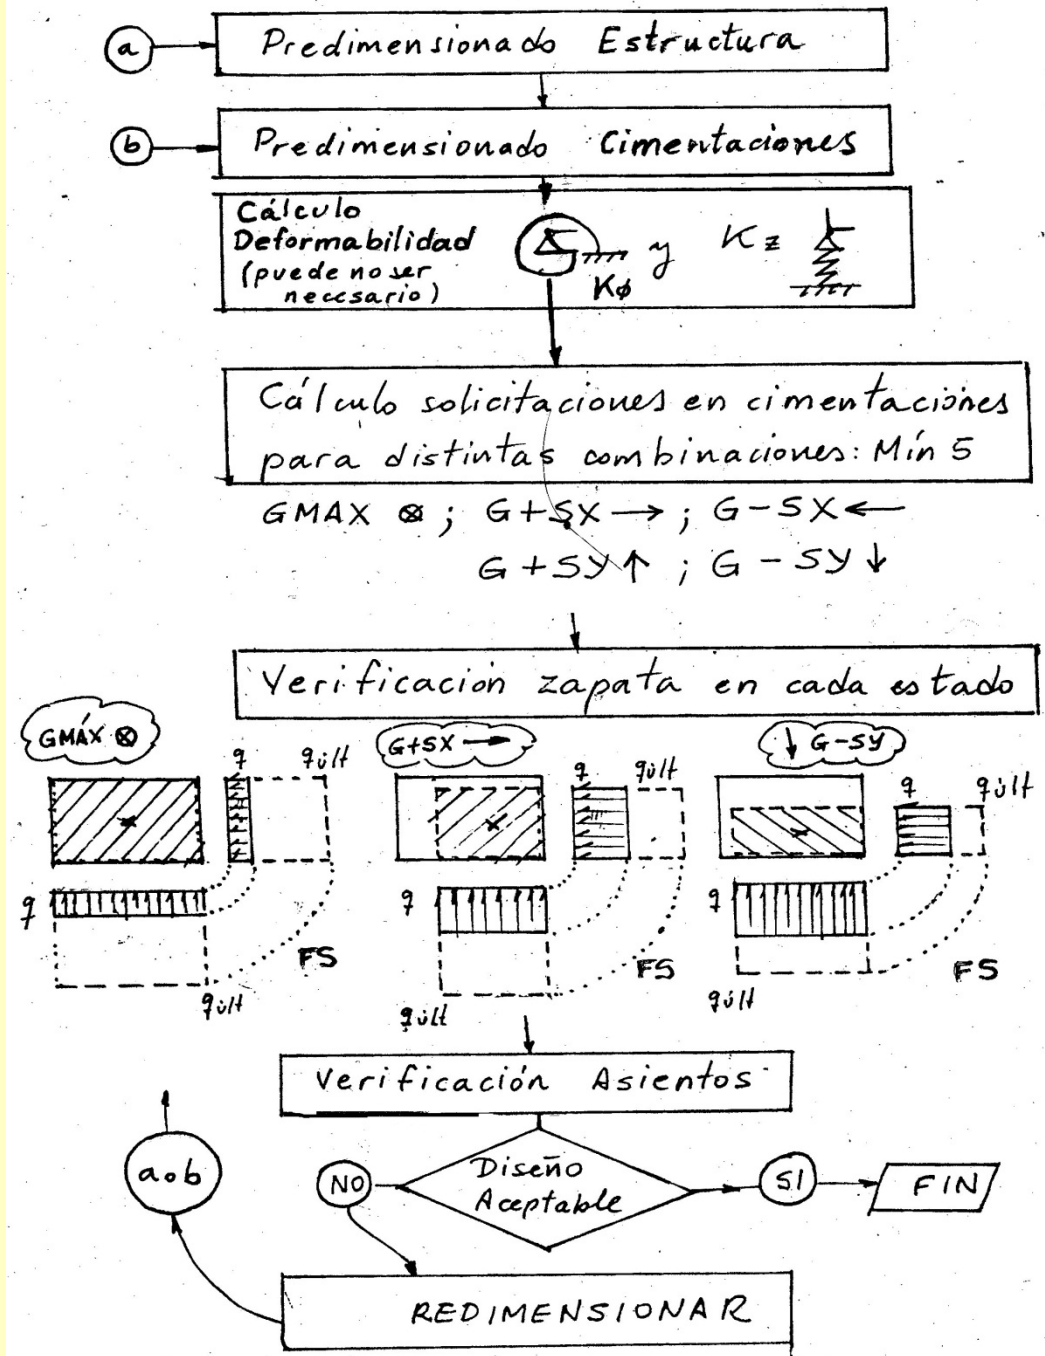 a
Predimensionado Estructura
b
Predimensionado Cimentaciones
Cálculo
Deformabilidad
(puede no ser
necesario)
Kφ
y
Kz
Cálculo solicitaciones en cimentaciones
para distintas combinaciones: Mín 5
GMAX ⊗ ; G+SX → ; G-SX ←
G+SY ↑ ; G-SY ↓
Verificación zapata en cada estado
GMÁX ⊗
G+SX →
↓ G-SY
q
qúlt
q
qúlt
q
qúlt
q
q
q
FS
FS
FS
qúlt
qúlt
qúlt
Verificación Asientos
a o b
NO
Diseño
Aceptable
SI
FIN
REDIMENSIONAR